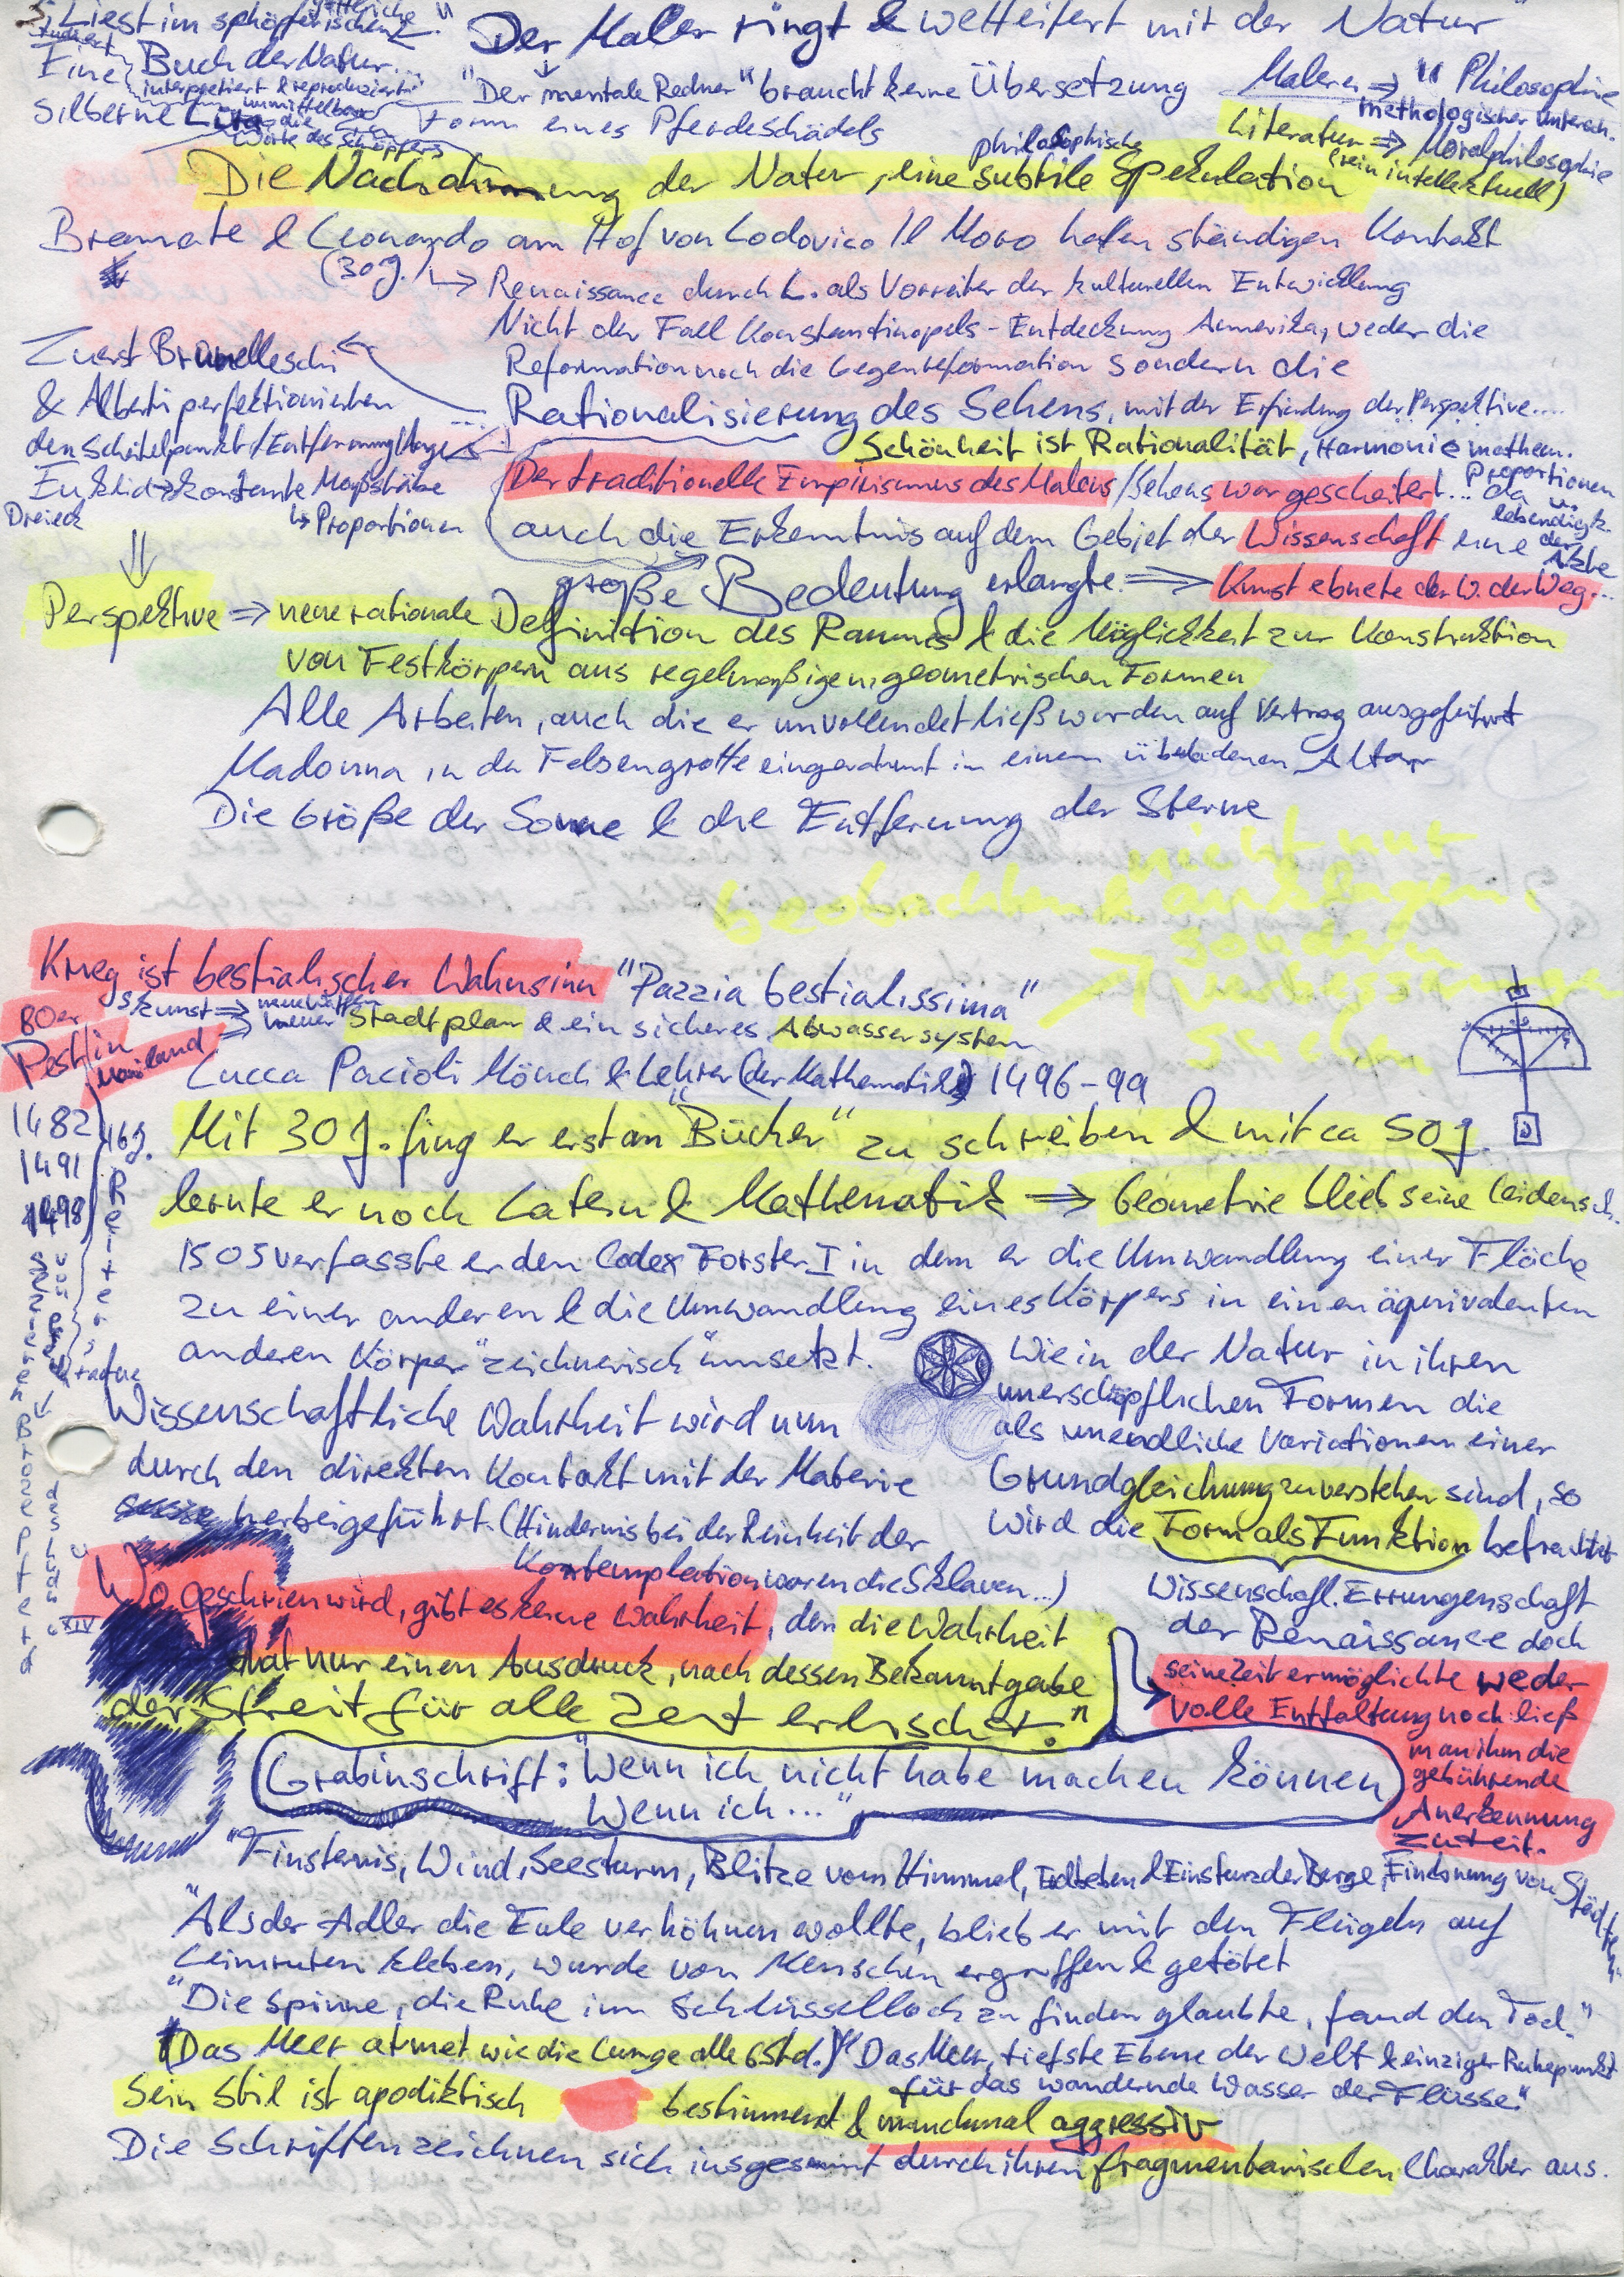 "Der Maler ringt & wetteifert mit der Natur"
Liest im schöpferischen
Buch der Natur...
interpretiert & reproduziert
unmittelbar
die
Werke des Schöpfers
Eine
silberne Lira
"Der mentale Redner" braucht keine Übersetzung
Form eines Pferdeschädels
Malerei => "Philosophie
methologischer Untersch.
Literatur => Moralphilosophie
(rein intellektuell)
philosophische
Die Nachahmung der Natur, eine subtile Spekulation
Bramate & Leonardo am Hof von Lodovico Il Moro hatten ständigen Kontakt
(30J.)
Renaissance durch L. als Vorreiter der kulturellen Entwicklung
Nicht der Fall Konstantinopels - Entdeckung Amerikas, weder die
Reformation noch die Gegenreformation sondern die
Rationalisierung des Sehens, mit der Erfindung der Perspektive....
Zuerst Brunelleschi
& Alberti perfektionierten
den Scheitelpunkt/Entfernung/Auge
Euklid => konstante Maßstäbe
Dreieck
↳ Proportionen
Schönheit ist Rationalität, Harmonie mathem.
Proportionen
u.
lebendigk.
der
Akte
Der traditionelle Empirismus des Malens/Sehens war gescheitert... da
auch die Erkenntnis auf dem Gebiet der Wissenschaft eine
große Bedeutung erlangte. => Kunst ebnete der W. den Weg...
Perspektive => neue rationale Definition des Raumes & die Möglichkeit zur Konstruktion
von Festkörpern aus regelmäßigen geometrischen Formen
Alle Arbeiten, auch die er unvollendet ließ wurden auf Vertrag ausgeführt
Madonna in der Felsengrotte eingerahmt in einem überladenen Altar
Die Größe der Sonne & die Entfernung der Sterne
nicht nur
beobachten & anklagen,
sondern
Lösungen
suchen
Krieg ist bestialischer Wahnsinn "Pazzia bestialissima"
skunst => neue Waffen
=> neuer Stadtplan & ein sicheres Abwassersystem
80er
Pest in
Mailand
Lucca Pacioli Mönch & Lehrer (der Mathematik) 1496-99
1482
1491
1498
16J.
Reiter
Mit 30 J. fing er erst an "Bücher" zu schreiben & mit ca 50 J
lernte er noch Latein & Mathematik => Geometrie blieb seine Leidensch.
1505 verfasste er den Codex Forster I in dem er die Umwandlung einer Fläche
zu einer anderen & die Umwandlung eines Körpers in einen äquivalenten
anderen Körper "zeichnerisch" umsetzt.
Wissenschaftliche Wahrheit wird nun
durch den direkten Kontakt mit der Materie
herbeigeführt. (Hindernis bei der Reinheit der
Kontemplation waren die Sklaven...)
Wie in der Natur in ihren
unerschöpflichen Formen die
als unendliche Variationen einer
Grundgleichung zu verstehen sind, so
wird die Form als Funktion betrachtet
Wissenschaftl. Errungenschaft
der Renaissance doch
seine Zeit ermöglichte weder
volle Entfaltung noch ließ
man ihm die
gebührende
Anerkennung
zuteil.
XIV
Wo geschrien wird, gibt es keine Wahrheit, den die Wahrheit
hat nur einen Ausdruck, nach dessen Bekanntgabe
der Streit für alle Zeit erlischt."
Grabinschrift: "Wenn ich nicht habe machen können
Wenn ich..."
"Finsternis, Wind, Seesturm, Blitze vom Himmel, Erdbeben & Einsturz der Berge, Einebnung von Städten."
"Als der Adler die Eule verhöhnen wollte, blieb er mit den Flügeln auf
Leimruten kleben, wurde von Menschen ergriffen & getötet
"Die Spinne, die Ruhe im Schlüsselloch zu finden glaubte, fand den Tod."
(Das Meer atmet wie die Lunge alle 6 Std.) "Das Meer, tiefste Ebene der Welt & einziger Ruhepunkt
für das wandernde Wasser der Flüsse."
Sein Stil ist apodiktisch bestimmend & manchmal aggressiv
Die Schriften zeichnen sich insgesamt durch ihren fragmentarischen Charakter aus.